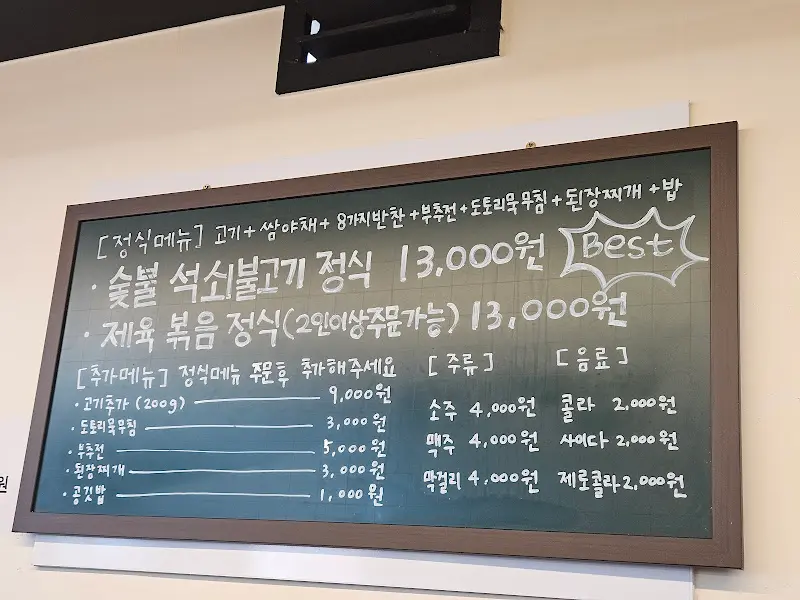 [정식메뉴] 고기+쌈야채+8가지반찬+부추전+도토리묵무침+된장찌개+밥
· 숯불 석쇠불고기 정식 13,000원 Best
· 제육 볶음 정식(2인이상주문가능) 13,000원
[추가메뉴] 정식메뉴 주문후 추가해주세요
· 고기추가 (200g) 9,000원
· 도토리묵무침 3,000원
· 부추전 5,000원
· 된장찌개 3,000원
· 공깃밥 1,000원
[주류]
소주 4,000원
맥주 4,000원
막걸리 4,000원
[음료]
콜라 2,000원
사이다 2,000원
제로콜라 2,000원
원